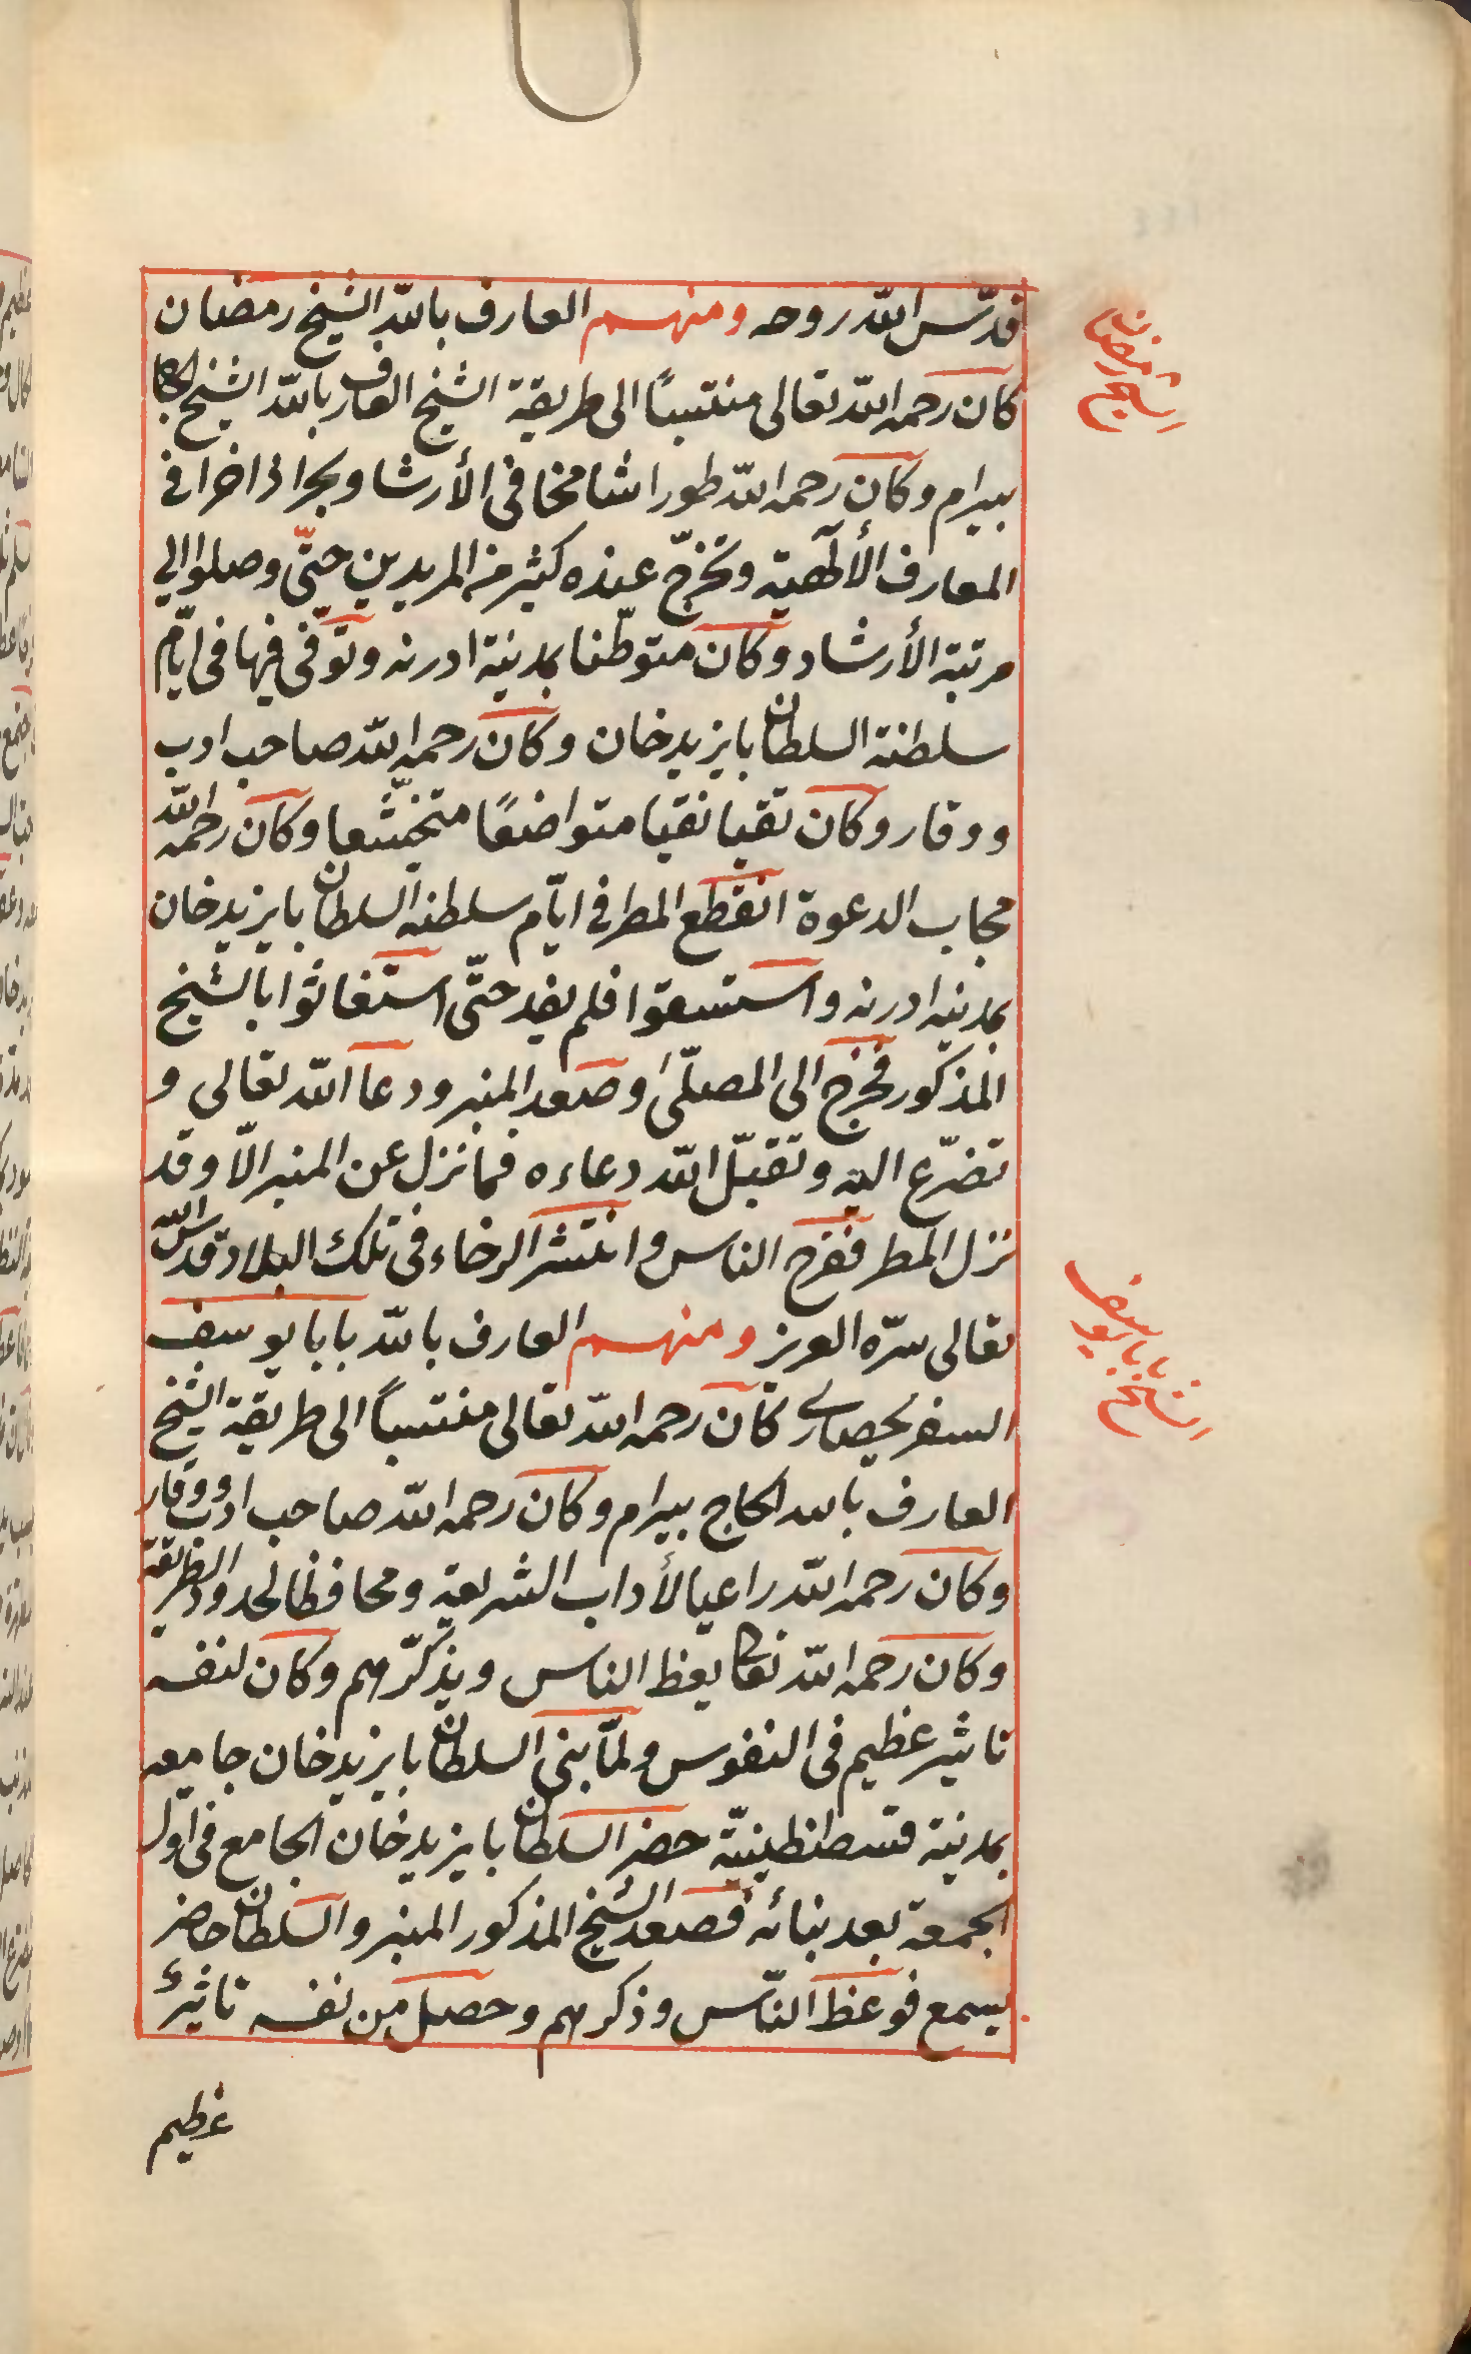 قدّس الله روحه ومنهم العارف بالله الشيخ رمضان
الشيخ رمضان
كان رحمه الله تعالى منتسبًا الى طريقة الشيخ العارف بالله الشيخ الحاج
بيرام وكان رحمه الله طورا شامخا فى الأرشاد وبحرا ذاخرا فى
المعارف الألٓهية وتخرّج عنده كثير من المريدين حتّى وصلوا الى
مرتبة الأرشاد وكان متوطّنا بمدينة ادرنه وتوّفى فيها فى ايّام
سلطنة السلطان بايزيد خان وكان رحمه الله صاحب ادب
ووقار وكان تقيا نقيا متواضعًا متخشّعا وكان رحمه الله
مجاب الدعوة انقطع المطر فى ايّام سلطنه السلطان بايزيد خان
بمدينه ادرنه واستسقوا فلم يفد حتّى استغاثوا بالشيخ
المذكور فخرج الى المصلّى وصعد المنبر ودعا الله تعالى و
تضرّع اليه وتقبّل الله دعاءه فما نزل عن المنبر الّا وقد
نزل المطر ففرح الناس وانتشر الرخاء فى تلك البلاد قدس الله
تعالى سرّه العزيز ومنهم العارف بالله بابا يوسف
الشيخ بابا يوسف
السفر يحصارى كان رحمه الله تعالى منتسباً الى طريقة الشيخ
العارف بالله الحاج بيرام وكان رحمه الله صاحب ادب ووقار
وكان رحمه الله راعيا لأداب الشريعة ومحافظا لحدود الطريقة
وكان رحمه الله تعالى يعظ الناس ويذكّرهم وكان لنفسه
تاثير عظيم فى النفوس ولمّا بنى السلطان بايزيد خان جامعه
بمدينة قسطنطينيّة حضر السلطان بايزيد خان الجامع فى اول
الجمعة بعد بنائه فصعد الشيخ المذكور المنبر والسلطان حاضر
يسمع فوعظ النّاس وذكرهم وحصل من نفسه تاثير
عظيم